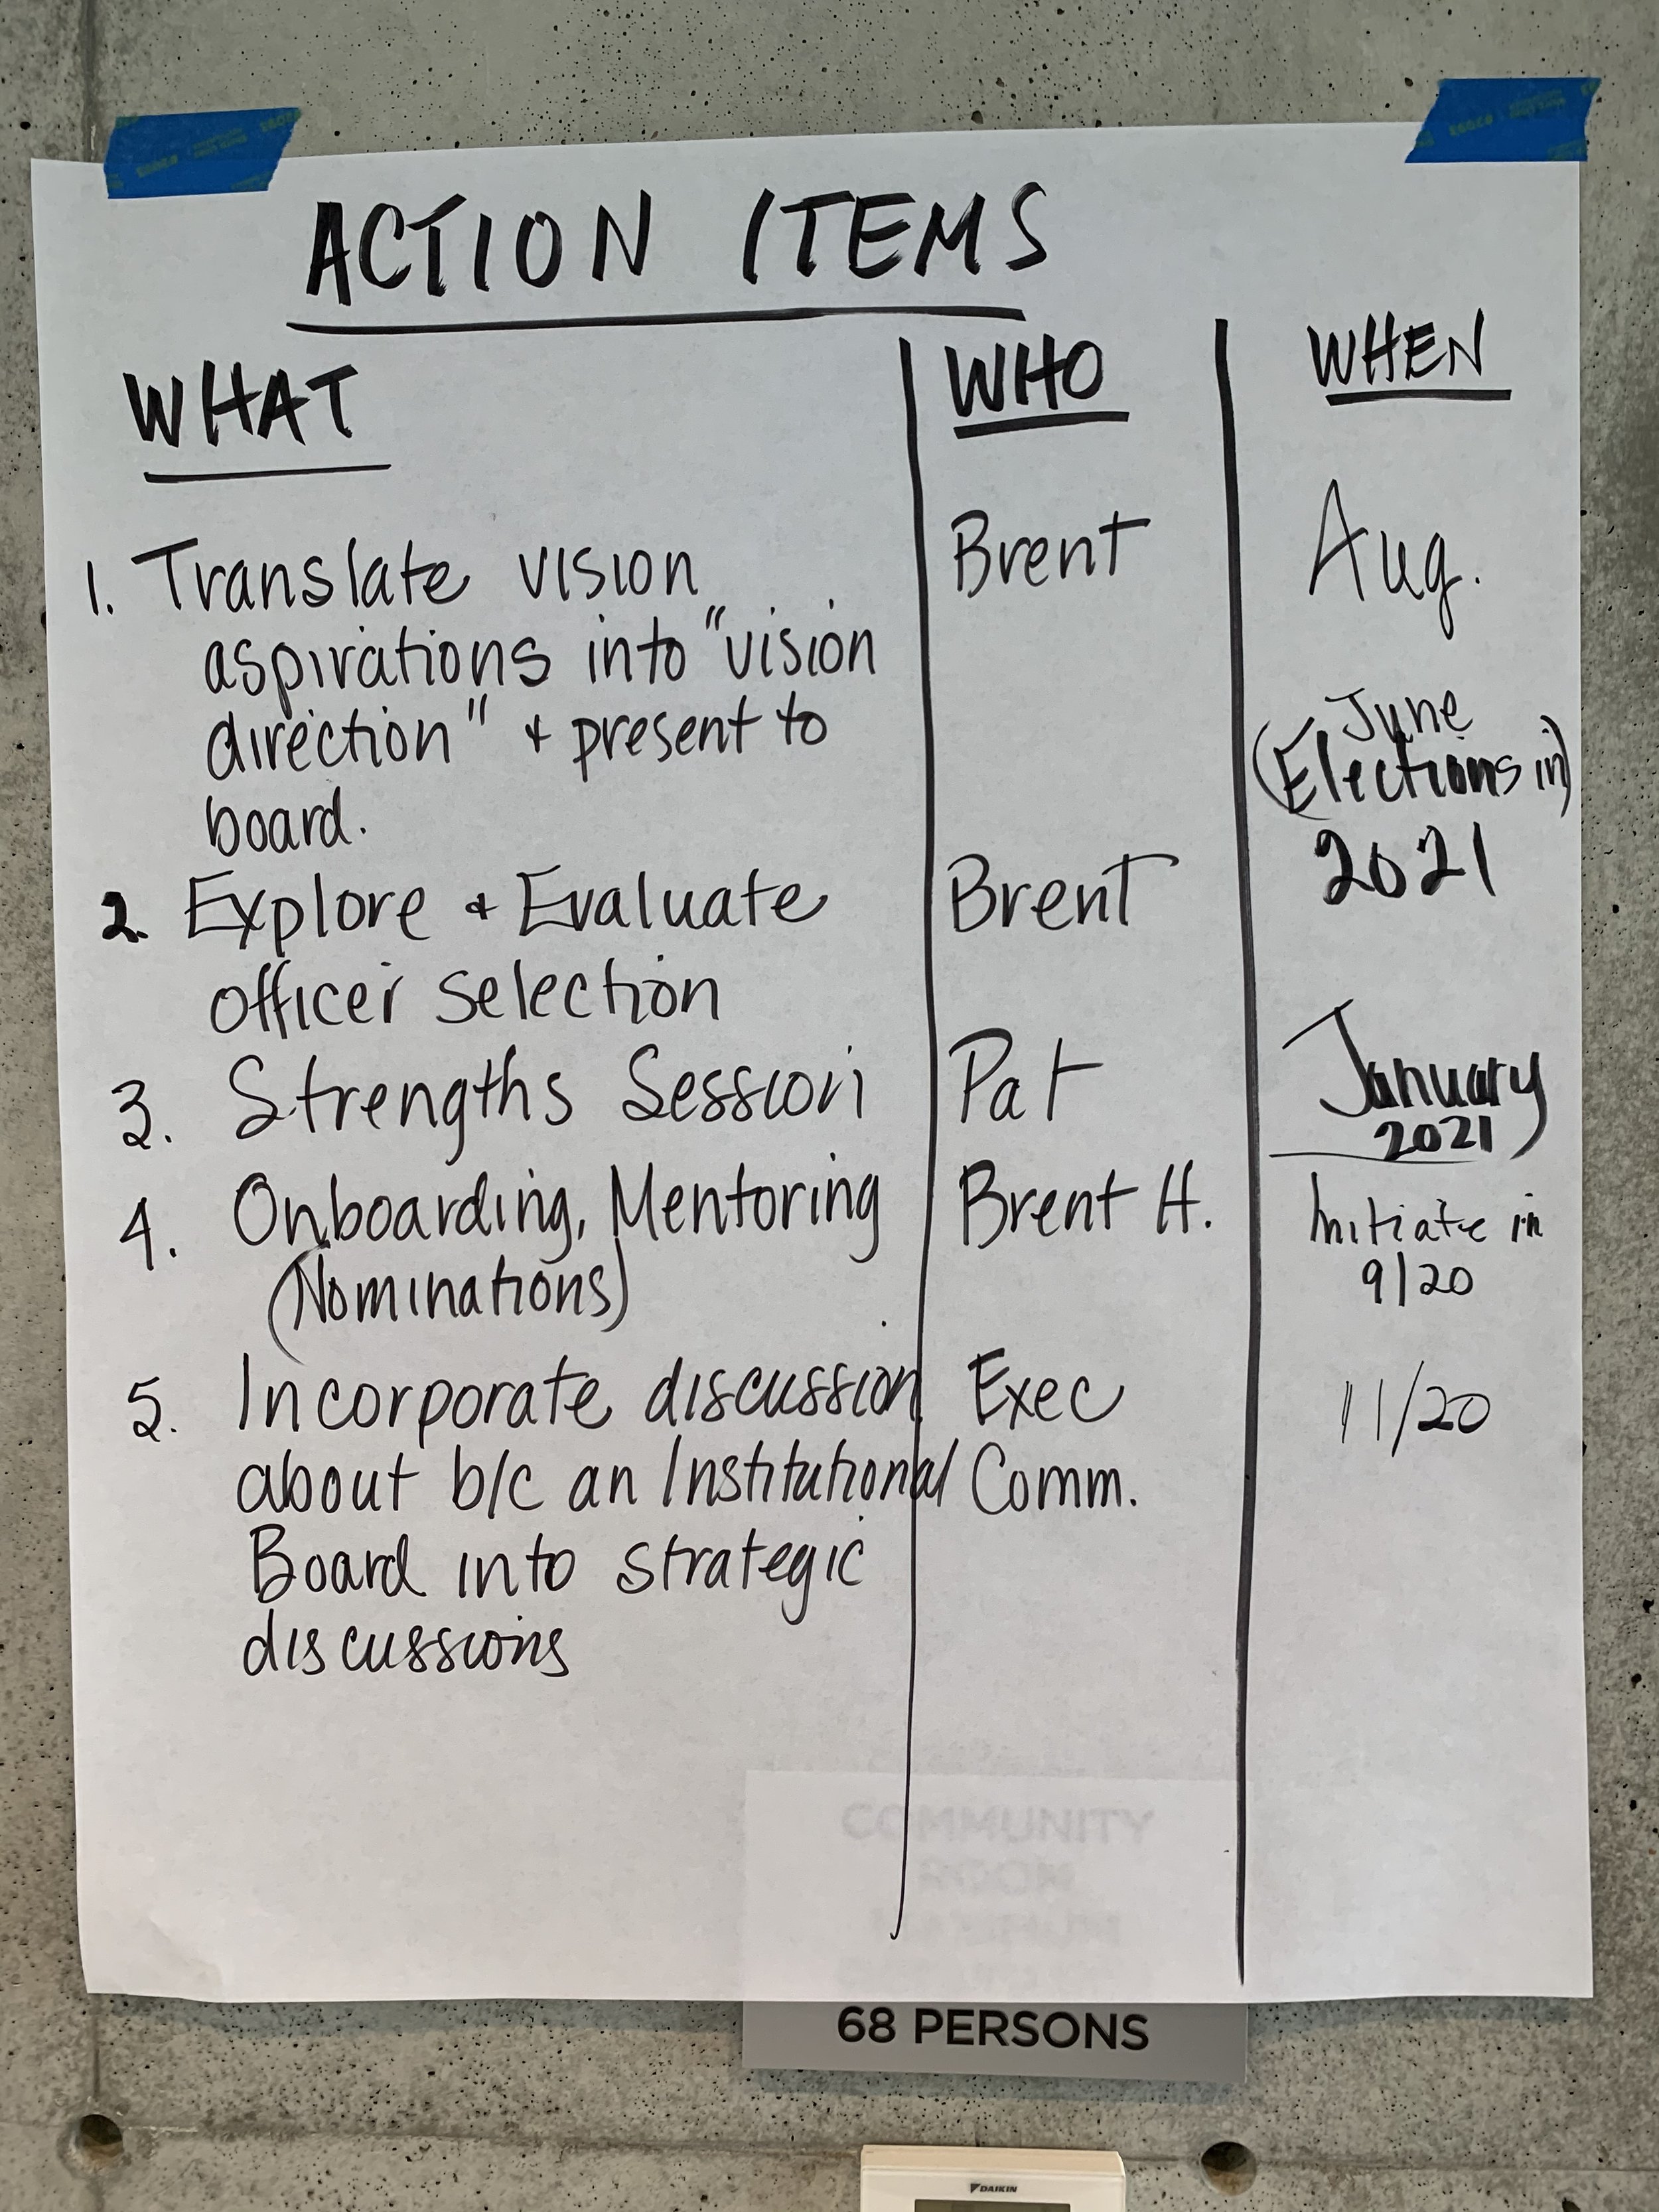 ACTION ITEMS
WHAT
WHO
WHEN
1. Translate vision
aspirations into "vision
direction" + present to
board.
Brent
Aug.
2. Explore + Evaluate
officer selection
Brent
June
(Elections in)
2021
3. Strengths Session
Pat
January
2021
4. Onboarding, Mentoring
(Nominations)
Brent H.
Initiate in
9/20
5. Incorporate discussion
about b/c an Institutional
Board into strategic
discussions
Exec
Comm.
11/20
COMMUNITY
ROOM
MAXIMUM
68 PERSONS
DAIKIN